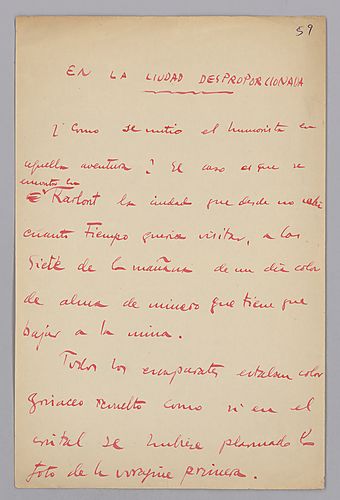 59
EN LA CIUDAD DESPROPORCIONADA
¿Como se metio el humorista en
aquella aventura? El caso es que se
encontro en
Karlont la ciudad que desde no sabía
cuanto tiempo queria visitar, a las
siete de la mañana de un dia color
de alma de minero que tiene que
bajar a la mina.
Todos los escaparates estaban color
grisaceo revuelto como si en el
cristal se hubiese plasmado la
foto de la voragine primera.